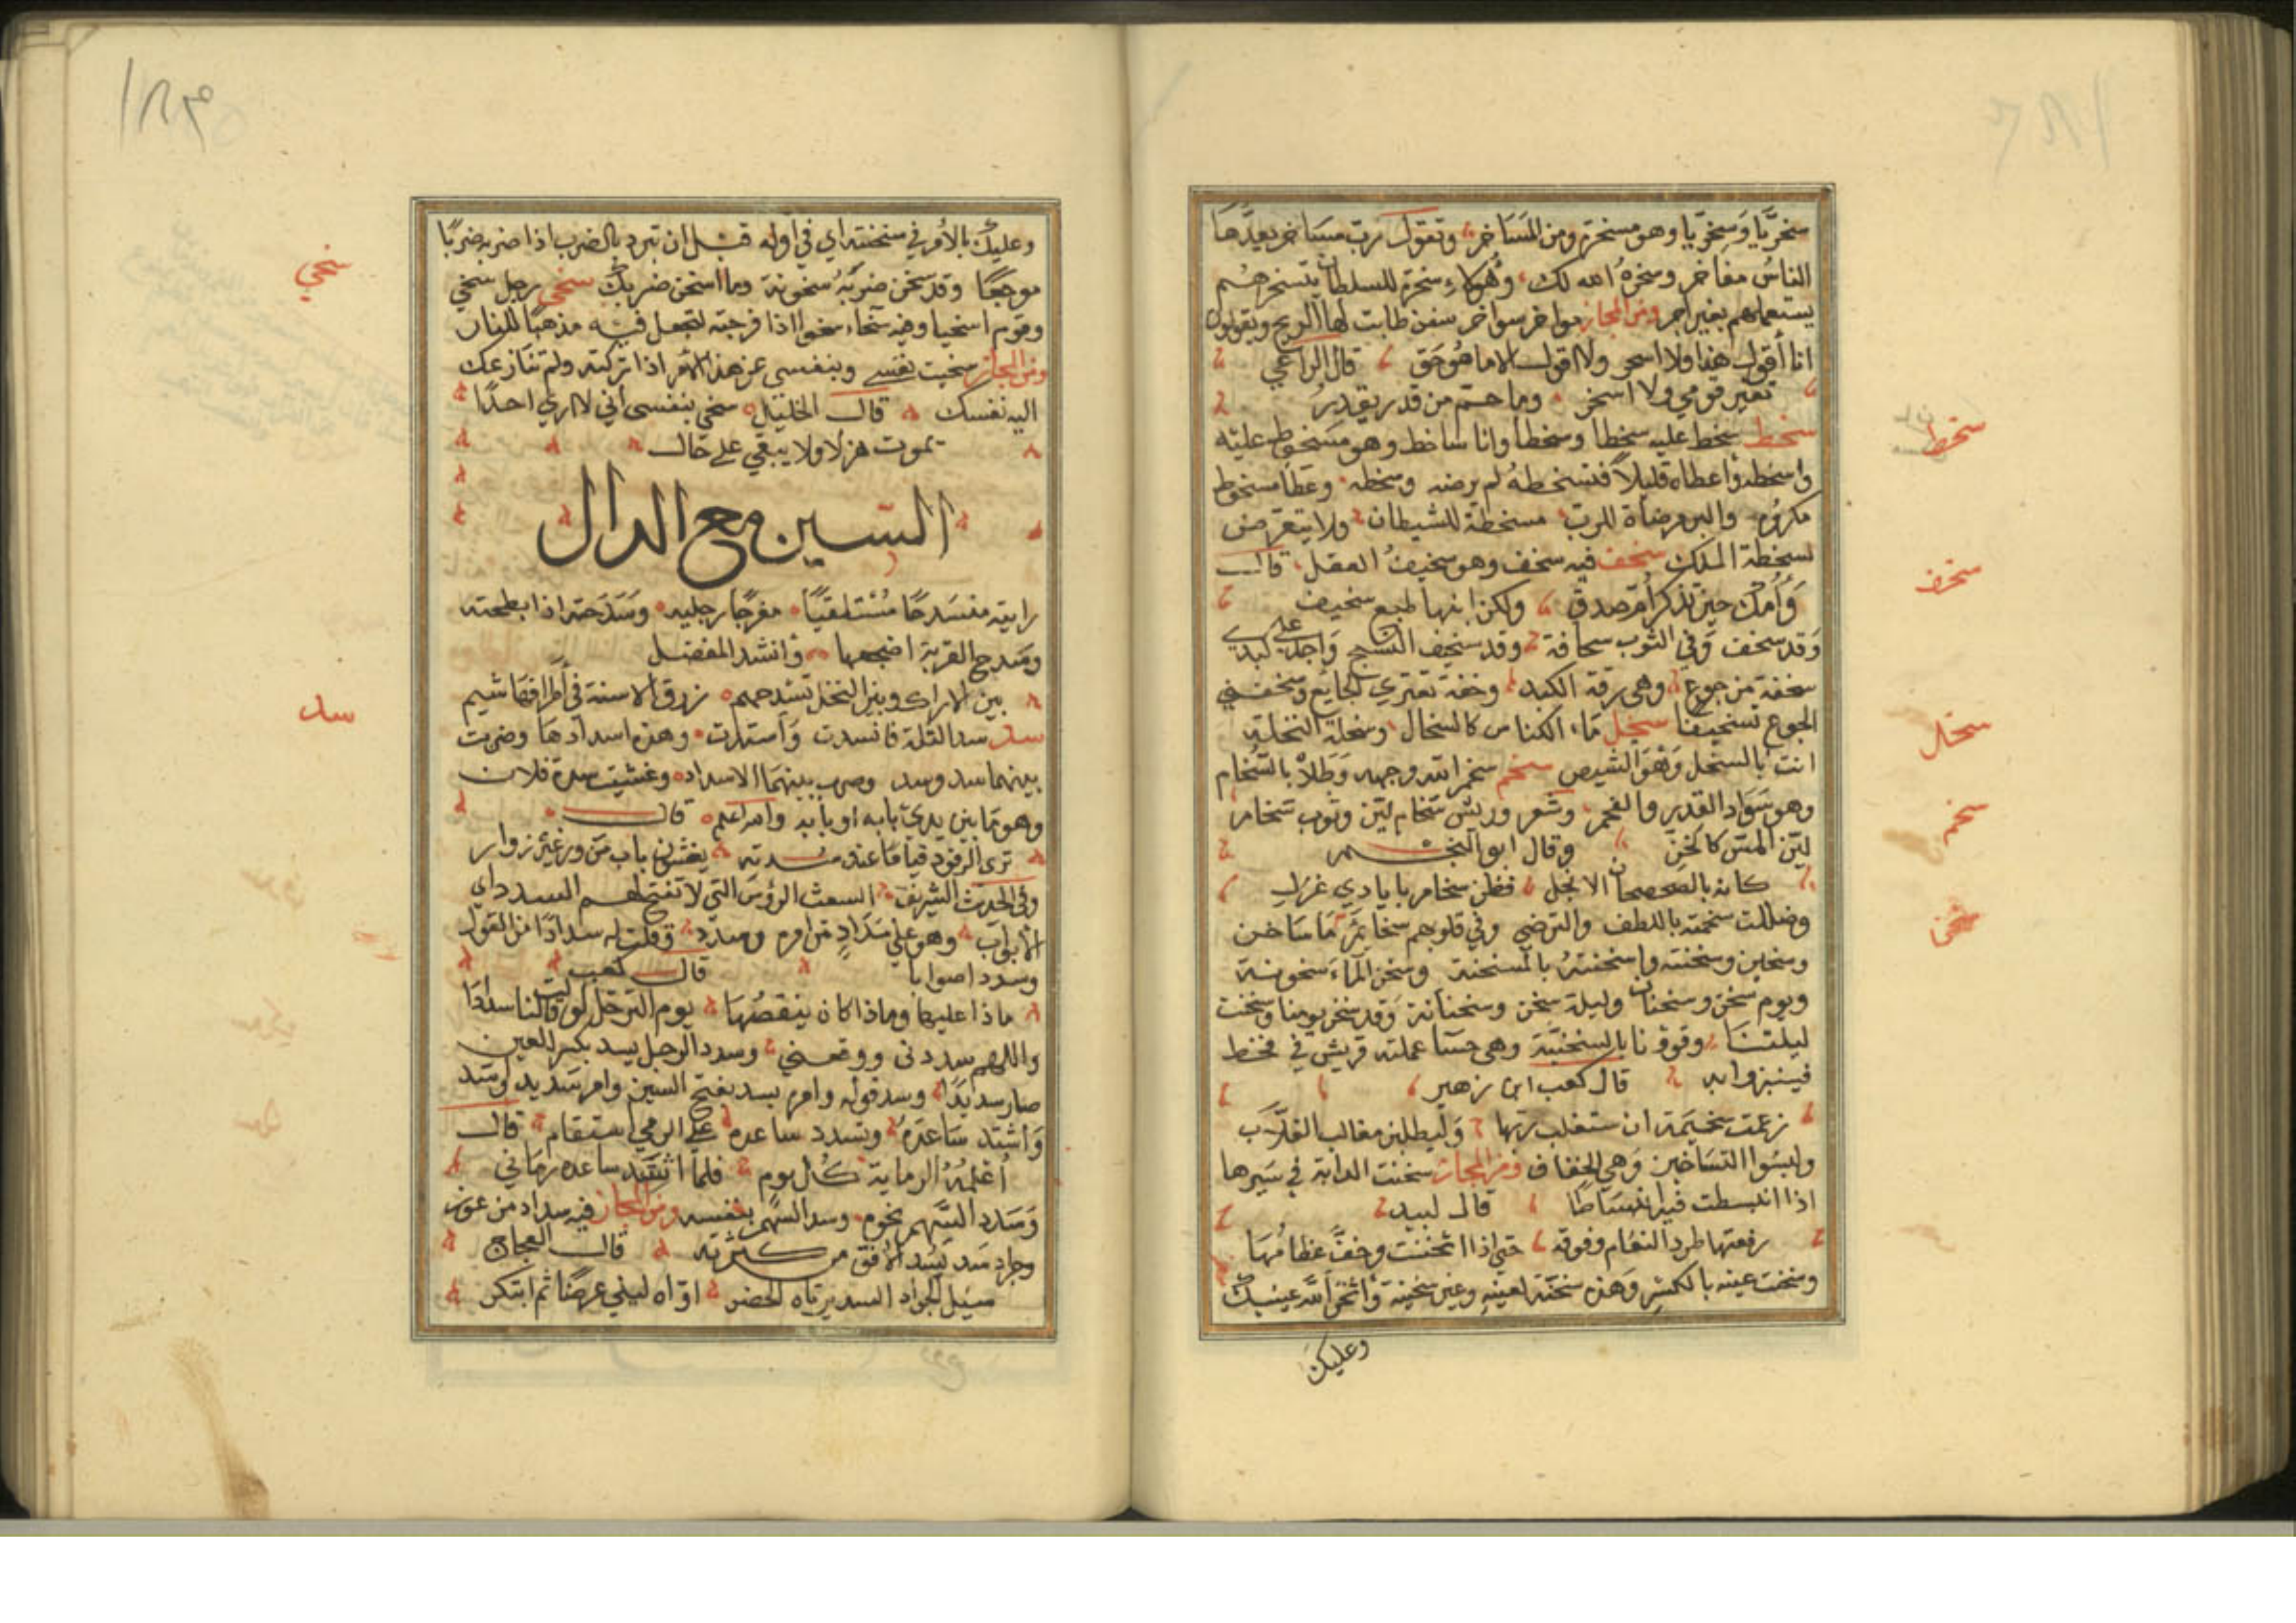 سخريا وسخريا وهو مسخرة ومن المساخر وتقول رب مساخر يعدها
الناس مفاخر وسخره الله لك وهؤلاء سخرة للسلطان يتسخرهم
يستعملهم بغير اجر ومن المجاز مواخر سواخر سفن طابت لها الريح ويقولون
انا أقول هذا ولا اسخر ولا اقول الا ما هو حق قال الراعي
تغير قومي ولا اسخر وما حم من قدر يقدر
سخط سخط عليه سخطا وسخطا وانا ساخط وهو مسخوط عليه
واسخطه واعطاه قليلا فتسخطه لم يرضه وسخطه وعطا مسخوط
مكروه والبر مرضاة للرب مسخطة للشيطان ولا يتعرض
لسخطة الملك سخف فيه سخف وهو سخيف العقل قال
وأمك حين تذكر أم صدق ولكن ابنها طبع سخيف
وقد سخف وفي الثوب سخافة وقد سخيف النسج واجد على كبدي
سخفة من جوع وهي رقة الكبد وخفة تعتري الجايع وسخفني
الجوع تسخيفا سخل ماء الكناس كالسخال وسخلة النخلة
انت بالسخل وهو الشيص سخم سخم الله وجهه وطلاه بالسخام
وهو سواد القدر والفحم وشعر وريش سخام لين وثوب سخام
لين المس كالخز وقال ابو النجم
كانه بالصحصحان الانجل فظن سخام بايادي غزل
وضللت سخمته باللطف والترضي وفي قلوبهم سخائم ما ساخن
وسخين وسخنته واسخنته بالمسخنة وسخن الماء سخونة
ويوم سخن وسخنان وليلة سخن وسخنانة وقد سخن يومنا وسخنت
ليلتنا وقوفنا بالسخينة وهي حسا عملته قريش في قحط
فينبزوا به قال كعب ابن زهير
زعمت سخينة ان ستغلب ربها وليطلبن مغالب الغلاب
ولبسوا التساخين وهي الخفاف ومن المجاز سخنت الدابة في سيرها
اذا انبسطت فيه انبساطا قال لبيد
رفعتها طرد النعام وفوقه حتى اذا اسخنت وخف عظامها
وسخنت عينه بالكسر وهذه سخنة لعينه وعين سخينة وأسخن الله عينيك
وعليك
سخط
سخف
سخل
سخم
سخن
١٨٣
وعليك بالأمر في سخنته اي في اوله قبل ان تبرد بالضرب اذا ضربه ضربا
موجعا وقد سخن ضربه سخونة وما اسخن ضربك سخي رجل سخي
وقوم اسخيا وفيه سخاء سخوا اذا فرجته لتجعل فيه مذهبا للنار
ومن المجاز سخيت نفسي وبنفسي عن هذا الأمر اذا تركته ولم تنازعك
اليه نفسك قال الخليل سخي بنفسي أني لا ارى احدا
يموت هزلا ولا يبقي على حال
السين مع الدال
رايته منسدحا مستلقيا مفرجا رجليه وسدحته اذا بطحته
وسدح القربة اضجعها وأنشد المفضل
بين الاراك وبين النخل تشدحهم زرق الاسنة في أطرافها شيم
سد سد الثلة فانسدت واستدت وهذه اسدادها وضربت
بينهما سد وسد وضرب بينهما الاسداد وغشيت سدة فلان
وهو ما بين يدي بابه او بابه والله اعلم قال
ترى الوفود قياما عند سدته يغشون باب مزور غير زوار
وفي الحديث الشريف الشعث الرؤس التي لا تفتح لهم السدد اي
الأبواب وهو على سداد من امره وسدد وقلت له سدادا من القول
وسددا صوابا قال كعب
ماذا عليها وماذا كان ينقصها يوم الترحل لو قالت لنا سددا
واللهم سددني ووفقني وسدد الرجل يسد بكسر العين
صار سديدا وسد قوله وامره يسد بفتح السين وامر سديد وسد
واشتد ساعده وتسدد ساعده على الرمي استقام قال
أعلمه الرماية كل يوم فلما اشتد ساعده رماني
وسدد السهم نحوه وسد السهم بنفسه ومن المجاز فيه سداد من عوز
وجراد سد يسد الأفق من كثرته قال العجاج
سيل الجراد السد يرتاد الخضر اواه ليلي عرضا ثم ابتكر
سخي
سد